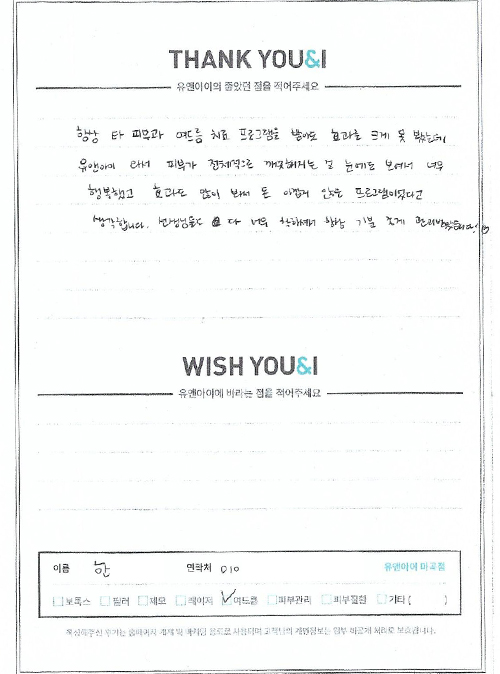 THANK YOU&I
유앤아이의 좋았던 점을 적어주세요
항상 타 피부과 여드름 치료 프로그램을 받아도 효과를 크게 못 봤는데,
유앤아이 와서 피부가 전체적으로 깨끗해지는 걸 눈에도 보여서 너무
행복했고 효과도 많이 봐서 돈 아깝지 않은 프로그램이었다고
생각합니다. 선생님들도 다 너무 착하셔서 항상 기분 좋게 관리받았습니다!
WISH YOU&I
유앤아이에 바라는 점을 적어주세요
이름 한 연락처 010 유앤아이 마곡점
보톡스 필러 제모 레이저 여드름 피부관리 피부질환 기타 ( )
작성해주신 후기는 홈페이지 게재 및 마케팅 용도로 사용되며 고객님의 개인정보는 일부 비공개 처리로 보호됩니다.